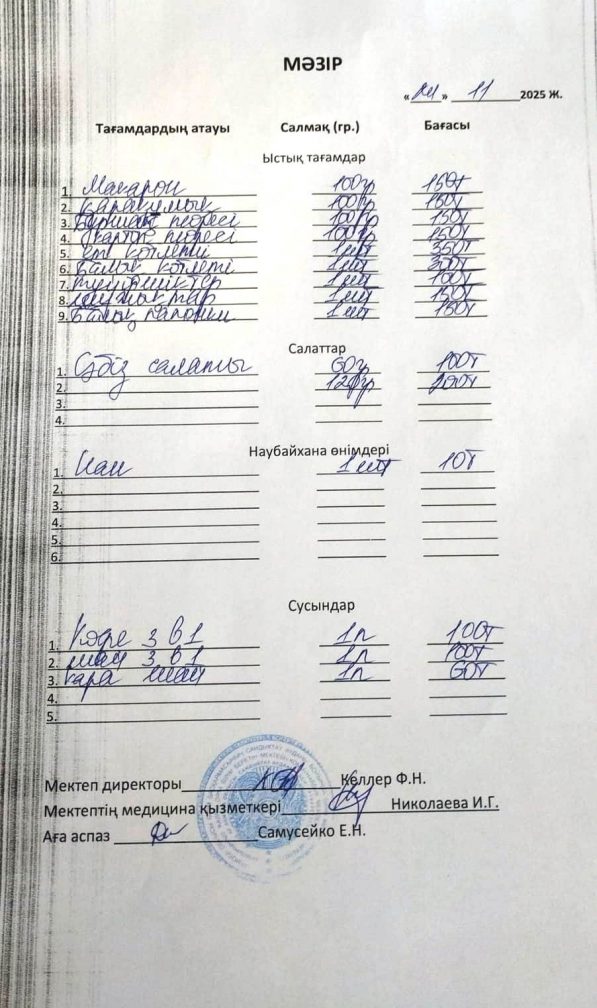 МӘЗІР
« » 11 2025 Ж.
Тағамдардың атауы Салмақ (гр.) Бағасы
Ыстық тағамдар
1. Макарон 100гр 150т
2. Қарақұмық 100гр 150т
3. Бұршақ пюресі 100гр 150т
4. Картоп пюресі 100гр 150т
5. Ет котлеті 1шт 350т
6. Балық котлеті 1шт 300т
7. 1шт 100т
8. 1шт 150т
9. Балық 1шт 150т
Салаттар
1. Сәбіз салаты 60гр 100т
2. 120гр 200т
3.
4.
Наубайхана өнімдері
1. Нан 1шт 10т
2.
3.
4.
5.
6.
Сусындар
1. Кофе 3 в 1 1п 100т
2. шай 3 в 1 1п 100т
3. қара шай 1п 60т
4.
5.
Мектеп директоры Келлер Ф.Н.
Мектептің медицина қызметкері Николаева И.Г.
Аға аспаз Самусейко Е.Н.